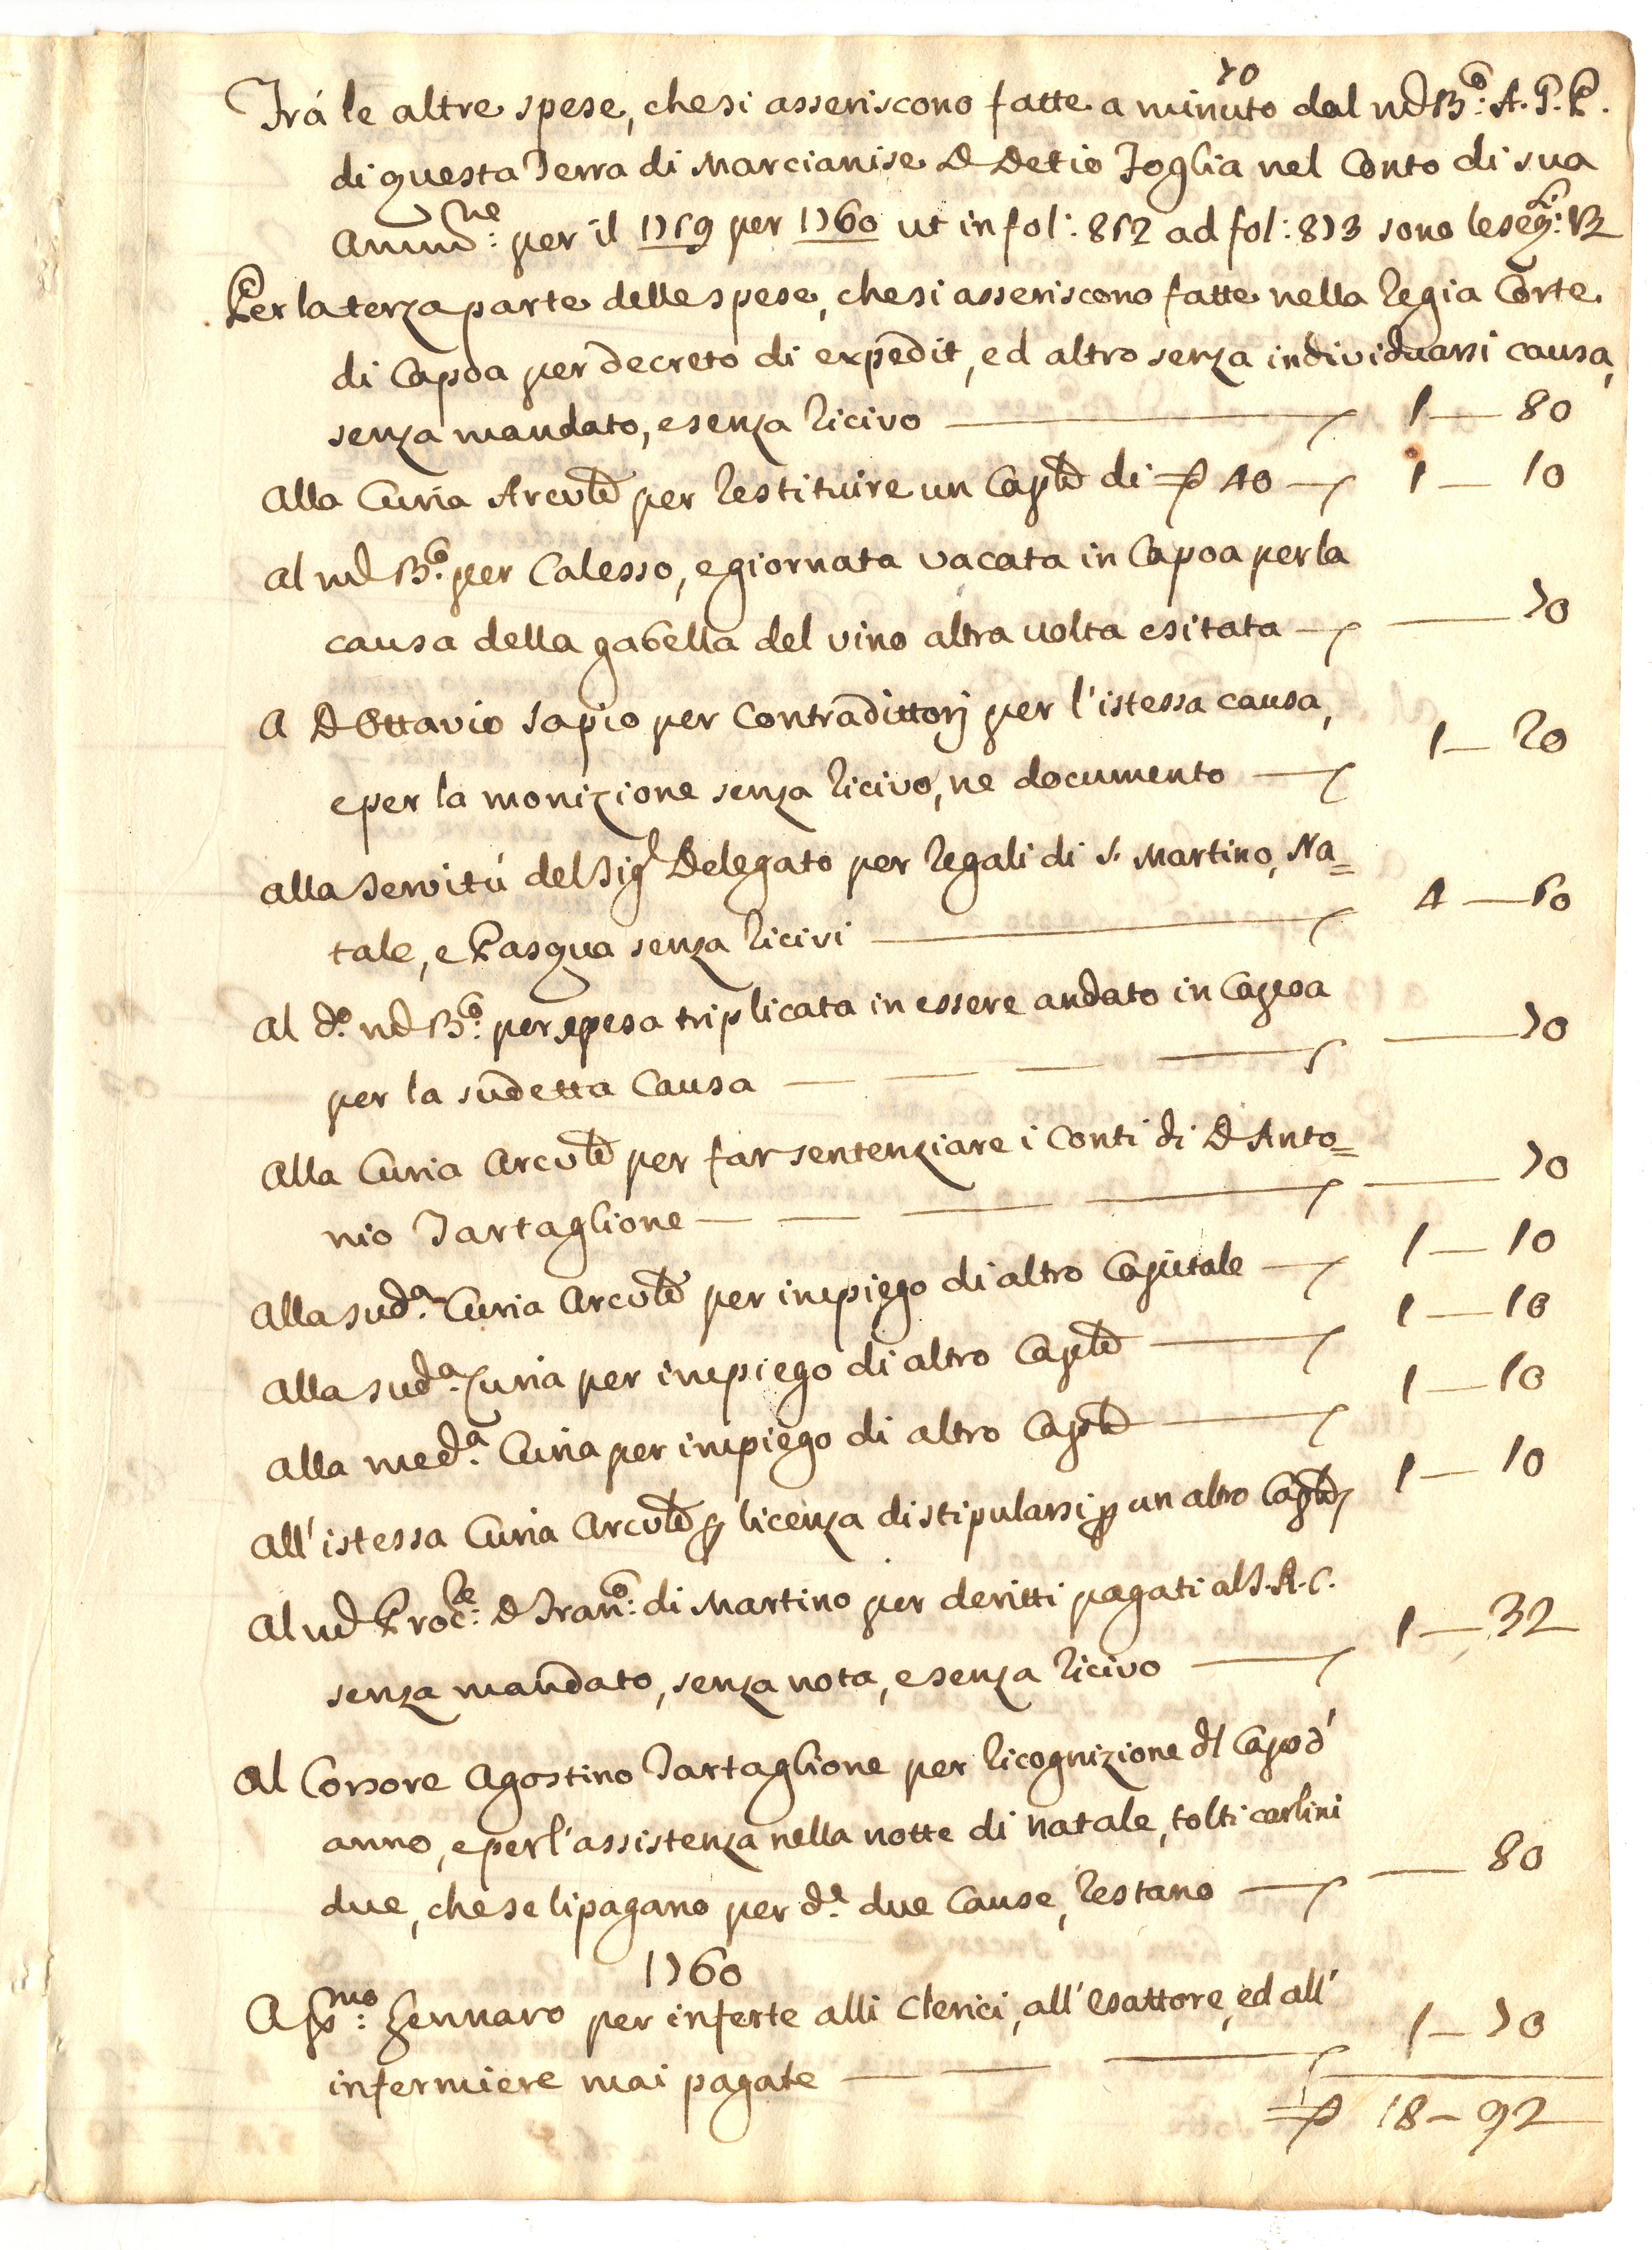 70
Frà le altre spese, che si asseriscono fatte a minuto dal nd Bo: A. G. P.
di questa Terra di Marcianise D Detio Foglia nel Conto di sua
Ammne: per il 1759 per 1760 ut in fol: 852 ad fol: 873 sono le seg:ti Vz
Per la terza parte delle spese, che si asseriscono fatte nella Regia Corte
di Capoa per decreto di expedit, ed altro senza individuarsi causa,
senza mandato, e senza ricivo — 1 — 80
Alla Curia Arcvle per restituire un Caple di 40 — 1 — 10
Al nd Bo: per Calesso, e giornata vacata in Capoa per la
causa della gabella del vino altra volta esitata — 70
A D Ottavio Sapio per Contradittorj per l'istessa causa,
e per la monizione senza ricivo, ne documento — 1 — 20
Alla Servitù del Sigr Delegato per regali di S. Martino, Na=
tale, e Pasqua senza ricivi — 4 — 50
Al do. nd Bo: per spesa triplicata in essere andato in Capoa
per la sudetta Causa — 70
Alla Curia Arcvle per far sentenziare i Conti di D Anto=
nio Tartaglione — 70
Alla suda. Curia Arcvle per impiego di altro Capitale — 1 — 10
Alla suda. Curia per impiego di altro Caple — 1 — 10
Alla meda. Curia per impiego di altro Caple — 1 — 10
All'istessa Curia Arcvle per licenza di stipularsi per un altro Caple 1 — 10
Al nd Procre: D Frano: di Martino per deritti pagati al S. R. C.
senza mandato, senza nota, e senza ricivo — 1 — 32
Al Corsore Agostino Tartaglione per ricognizione del Capo d'
anno, e per l'assistenza nella notte di Natale, tolti carlini
due, che se li pagano per de. due Cause, restano — 80
1760
A pmo: Gennaro per inferte alli Clerici, all'esattore, ed all'
infermiere mai pagate — 1 — 70
18 — 92